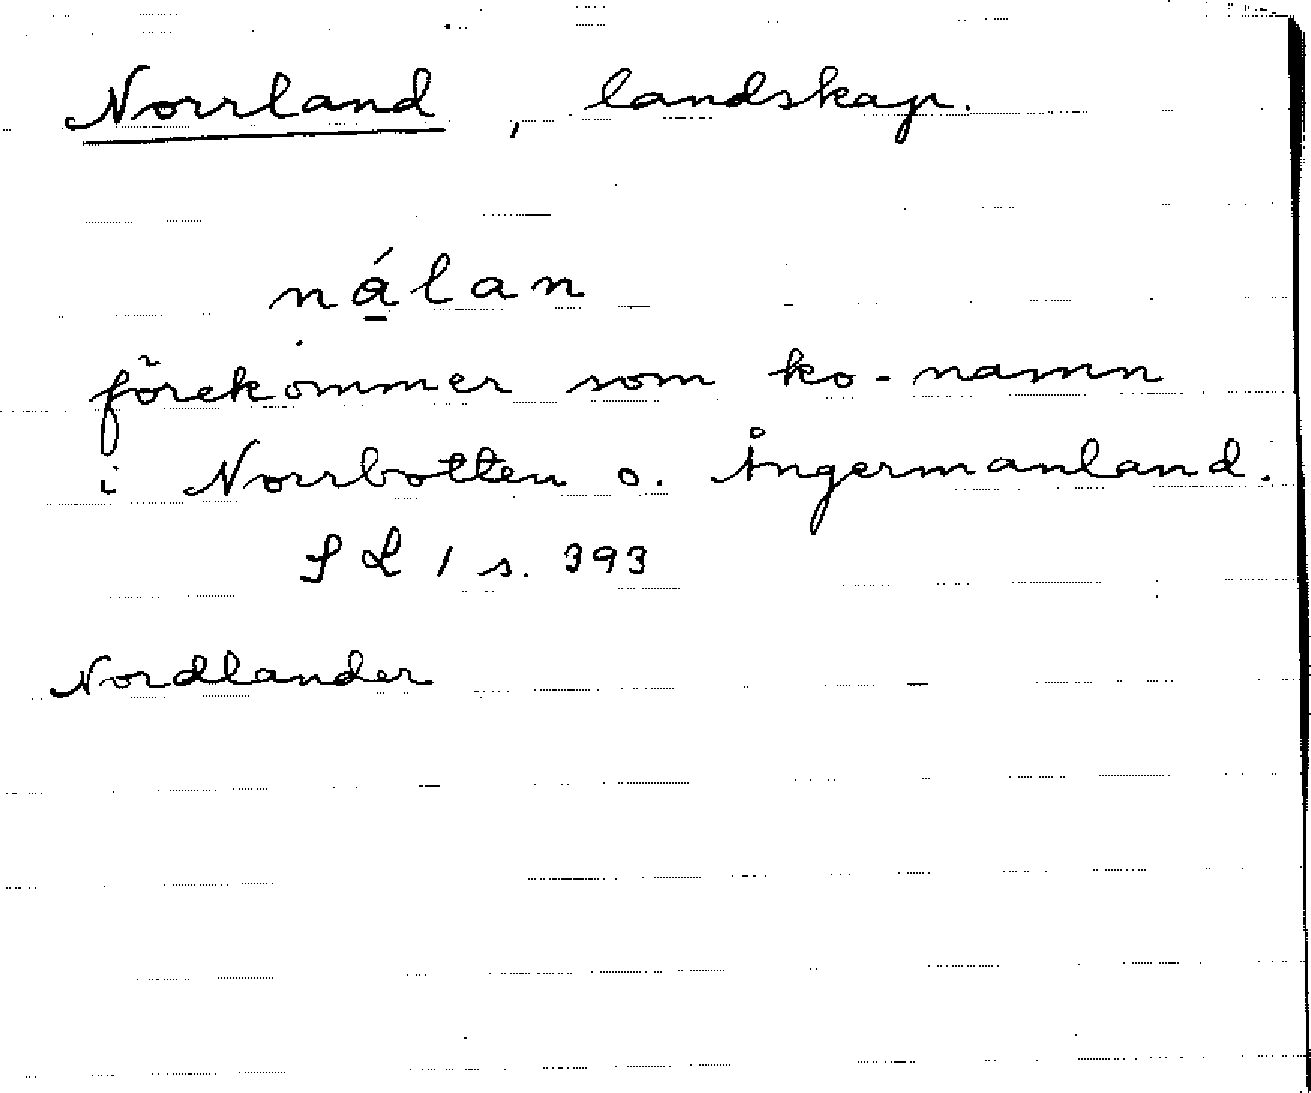 Norrland, landskap.
ná̱lan
förekommer som ko-namn
i Norrbotten o. Ångermanland.
SL 1 s. 393
Nordlander